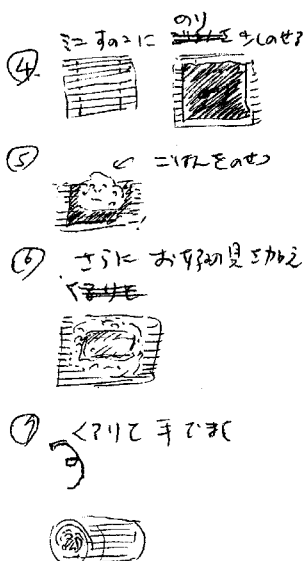 のり
④ ミニすのこに 少しのせる
⑤ ごはんをのせる
⑥ さらに お好み具を加え
⑦ くるりと手でまく